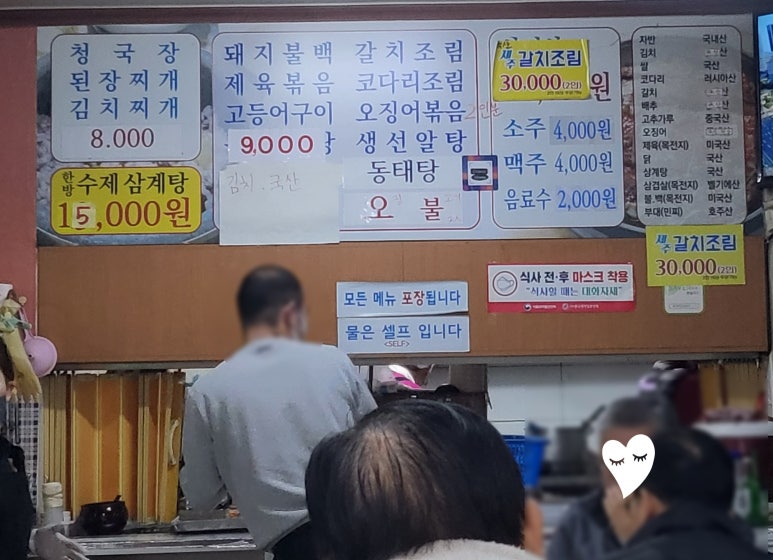 청국장
된장찌개
김치찌개
8.000
한방 수제삼계탕
15,000원
돼지불백 갈치조림
제육볶음 코다리조림
고등어구이 오징어볶음 2인분
9,000 생선알탕
김치.국산
동태탕
오 불
갈치조림
30.000(2인)
원
소주 4,000원
맥주 4,000원
음료수 2,000원
자반 국내산
김치
쌀 국산
코다리 러시아산
갈치
배추
고추가루 중국산
오징어
제육(목전지) 미국산
닭 국산
삼계탕 국산
삼겹살(목전지) 벨기에산
불.백(목전지) 미국산
부대(민찌) 호주산
갈치조림
30.000(2인)
모든 메뉴 포장됩니다
물은 셀프 입니다
<SELF>
식사 전·후 마스크 착용
"식사할 때는 대화자제"